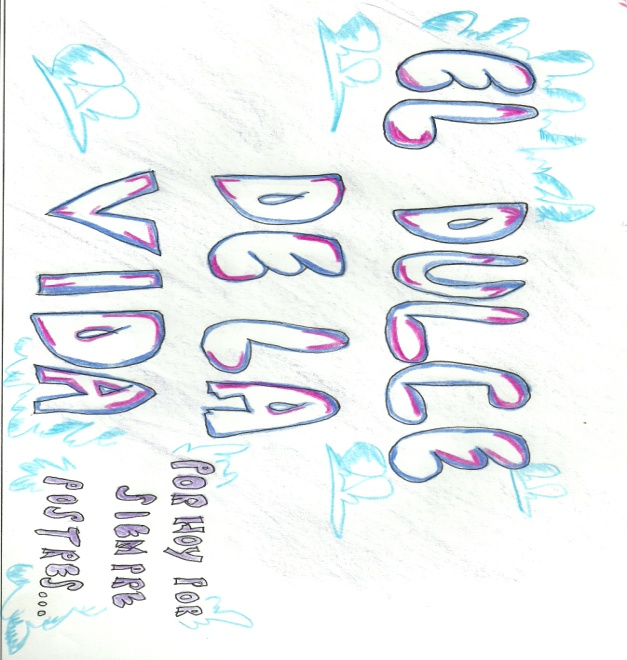 EL DULCE
DE LA
VIDA
POR HOY POR
SIEMPRE
POSTRES...